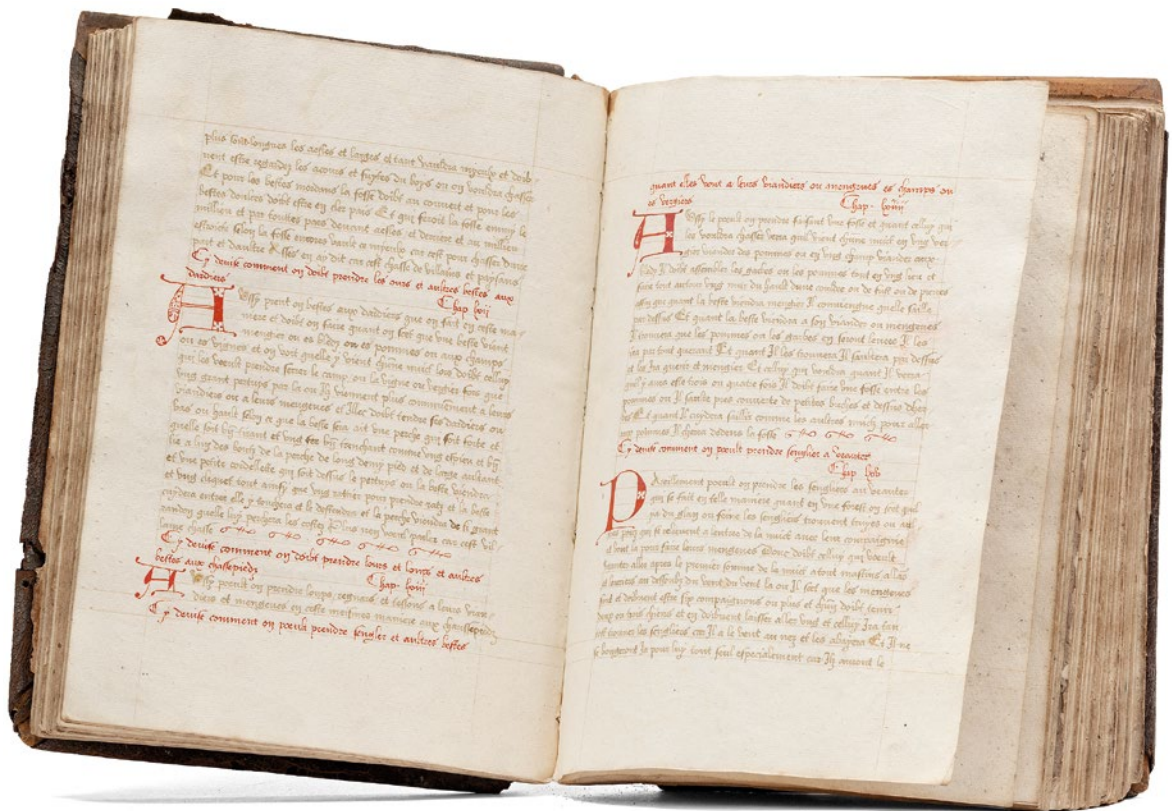 plus sont longues les aesles et larges et tant vauldra mieulx et doib
uent estre regardez les acours et fuytes du boys ou on vouldra chasser
Et pour les bestes mordans la fosse doibt au couuert et pour les
bestes doulces doibt estre en cler pais Et qui feroit la fosse emmy le
millieu et par toutes pars deuant aesles et derriere et au millieu
estroich selon la fosse encores vauldroit mieulx car cest pour chasser dune
part et daultre Assez en ay dit car cest chasse de villains et paysans
Cy deuise comment on doibt prendre les ours et aultres bestes aux
dardiers Chap lxij
Aussy prent on bestes aux dardiers que on fait en ceste ma
niere et doibt on faire quant on scet que vne beste vient
mengier en es bledz ou es pommes ou aux champs
ou es vignes et on voit quelle y vient chune nuict lors doibt celluy
qui les veoult prendre serrer le camp ou la vigne ou vergier fors que
vng grant pertuys par la ou Ilz viennent plus communement a leurs
viandiers ou a leurs mengeures et Illec doibt tendre ses dardiers ou
bas ou hault selon ce que la beste sera ait vne perche qui soit forte et
quelle soit bien tirant et vng fer bien trenchant comme vng espieu et bien
lie a lung des boutz de la perche de long demy pied et de large aultant
et vne petite cordellette qui soit dessus le pertuys ou la beste viendra
et vng cliquet tout ainsy que vng ratier pour prendre ratz et la beste
cuydera entrer elle y tendera et le destendera et la perche viendra de si grant
randon quelle luy perchera les costez Plus nen vueil parler car cest vil
laine chasse
Cy deuise comment on doibt prendre lours et loups et aultres
bestes aux chassepiedz Chap lxiij
Aussy poeult on prendre loups regnars et tessons a leurs vian
diers et mengeures en ceste mesmes maniere aux chassepiedz
Cy deuise comment on poeult prendre sengler et aultres bestes
quant elles vont a leurs viandiers ou mengeures es champs ou
es vergiers Chap lxiiij
Aussy le poeult on prendre faisant vne fosse et quant celluy qui
les vouldra chasser verra quil vient chune nuict en vng ver
gier viander des pommes ou en vng champ viander aux
bledz Il doibt assembler les gerbes ou les pommes tout en vng lieu et
faire tout autour vng mur du hault dune coudre ou de fust ou de pierres
affin que quant la beste viendra mengier Il conuiengne quelle saille
par dessus Et quant la beste viendra a son viander ou mengeures
Il trouuera que les pommes ou les garbes en seront leuees Il les
ira par tout querant Et quant Il les trouuera Il saultera par dessus
et les Ira querir et mengier Et celluy qui vouldra quant Il verra
quil y aura este trois ou quatre fois Il doibt faire vne fosse entre les
pommes ou Il saulte pres couuerte de petites buches et dessus dher
bes Et quant Il cuydera saillir comme les aultres nuictz pour aller
aux pommes Il cherra dedens la fosse
Cy deuise comment on poeult prendre senglier a veaultres
Chap lxv
Pareillement poeult on prendre les sengliers au veaultre
qui se fait en telle maniere quant en vne forest on scet quil
ya du glan ou foine les sengliers tiennent
puis quilz se relieuent a lentree de la nuict auec leur compaignie
et vont la pour faire leurs mengeures Donc doibt celluy qui veoult
veaultrer aller apres le premier somme de la nuict atout mastins aller
et leuriers au dessoubz du vent du vent la ou Il scet que les mengeures
sont et doibuent estre six compaignons ou plus et chun doibt tenir
deux ou trois chiens et en doibuent laisser aller vng et cellup Ira tan
tost trouuer les sengliers car Il a le vent au nez et les abayera Et Il ne
se bougeront Ia pour luy tout seul especialement car Ilz aiment le